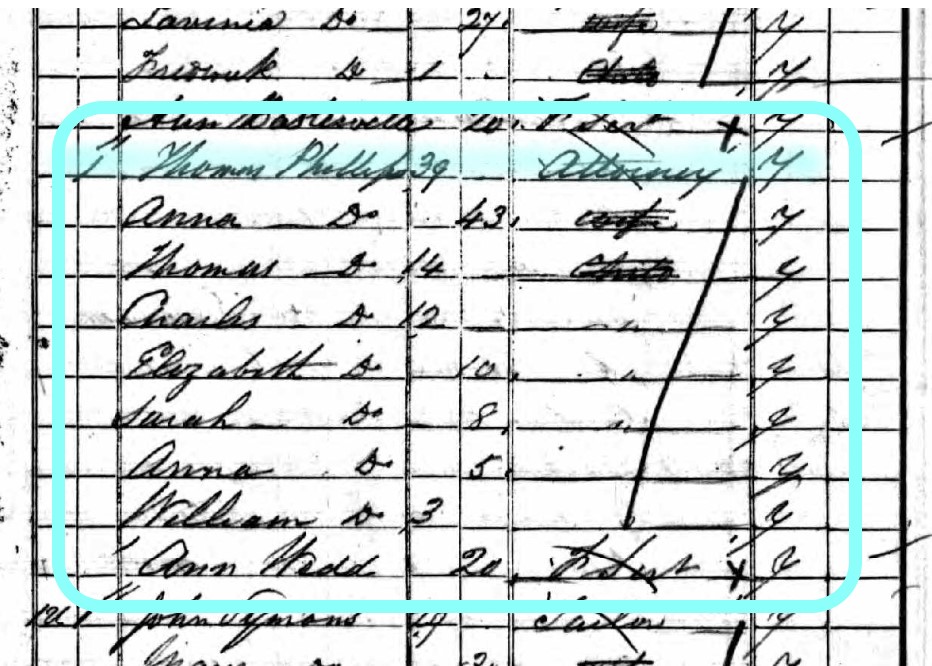 Lavinia Do 27 wife Y
Frederick Do 1 Y
Ann 20 F Sert Y
1 Thomas Phillips 39 Attorney Y
Anna Do 43 wife Y
Thomas Do 14 Y
Charles Do 12 " Y
Elizabeth Do 10 " Y
Sarah Do 8 " Y
Anna Do 5 Y
William Do 3 Y
Ann Wedd 20 F Sert Y
1 John Symons Tailor Y